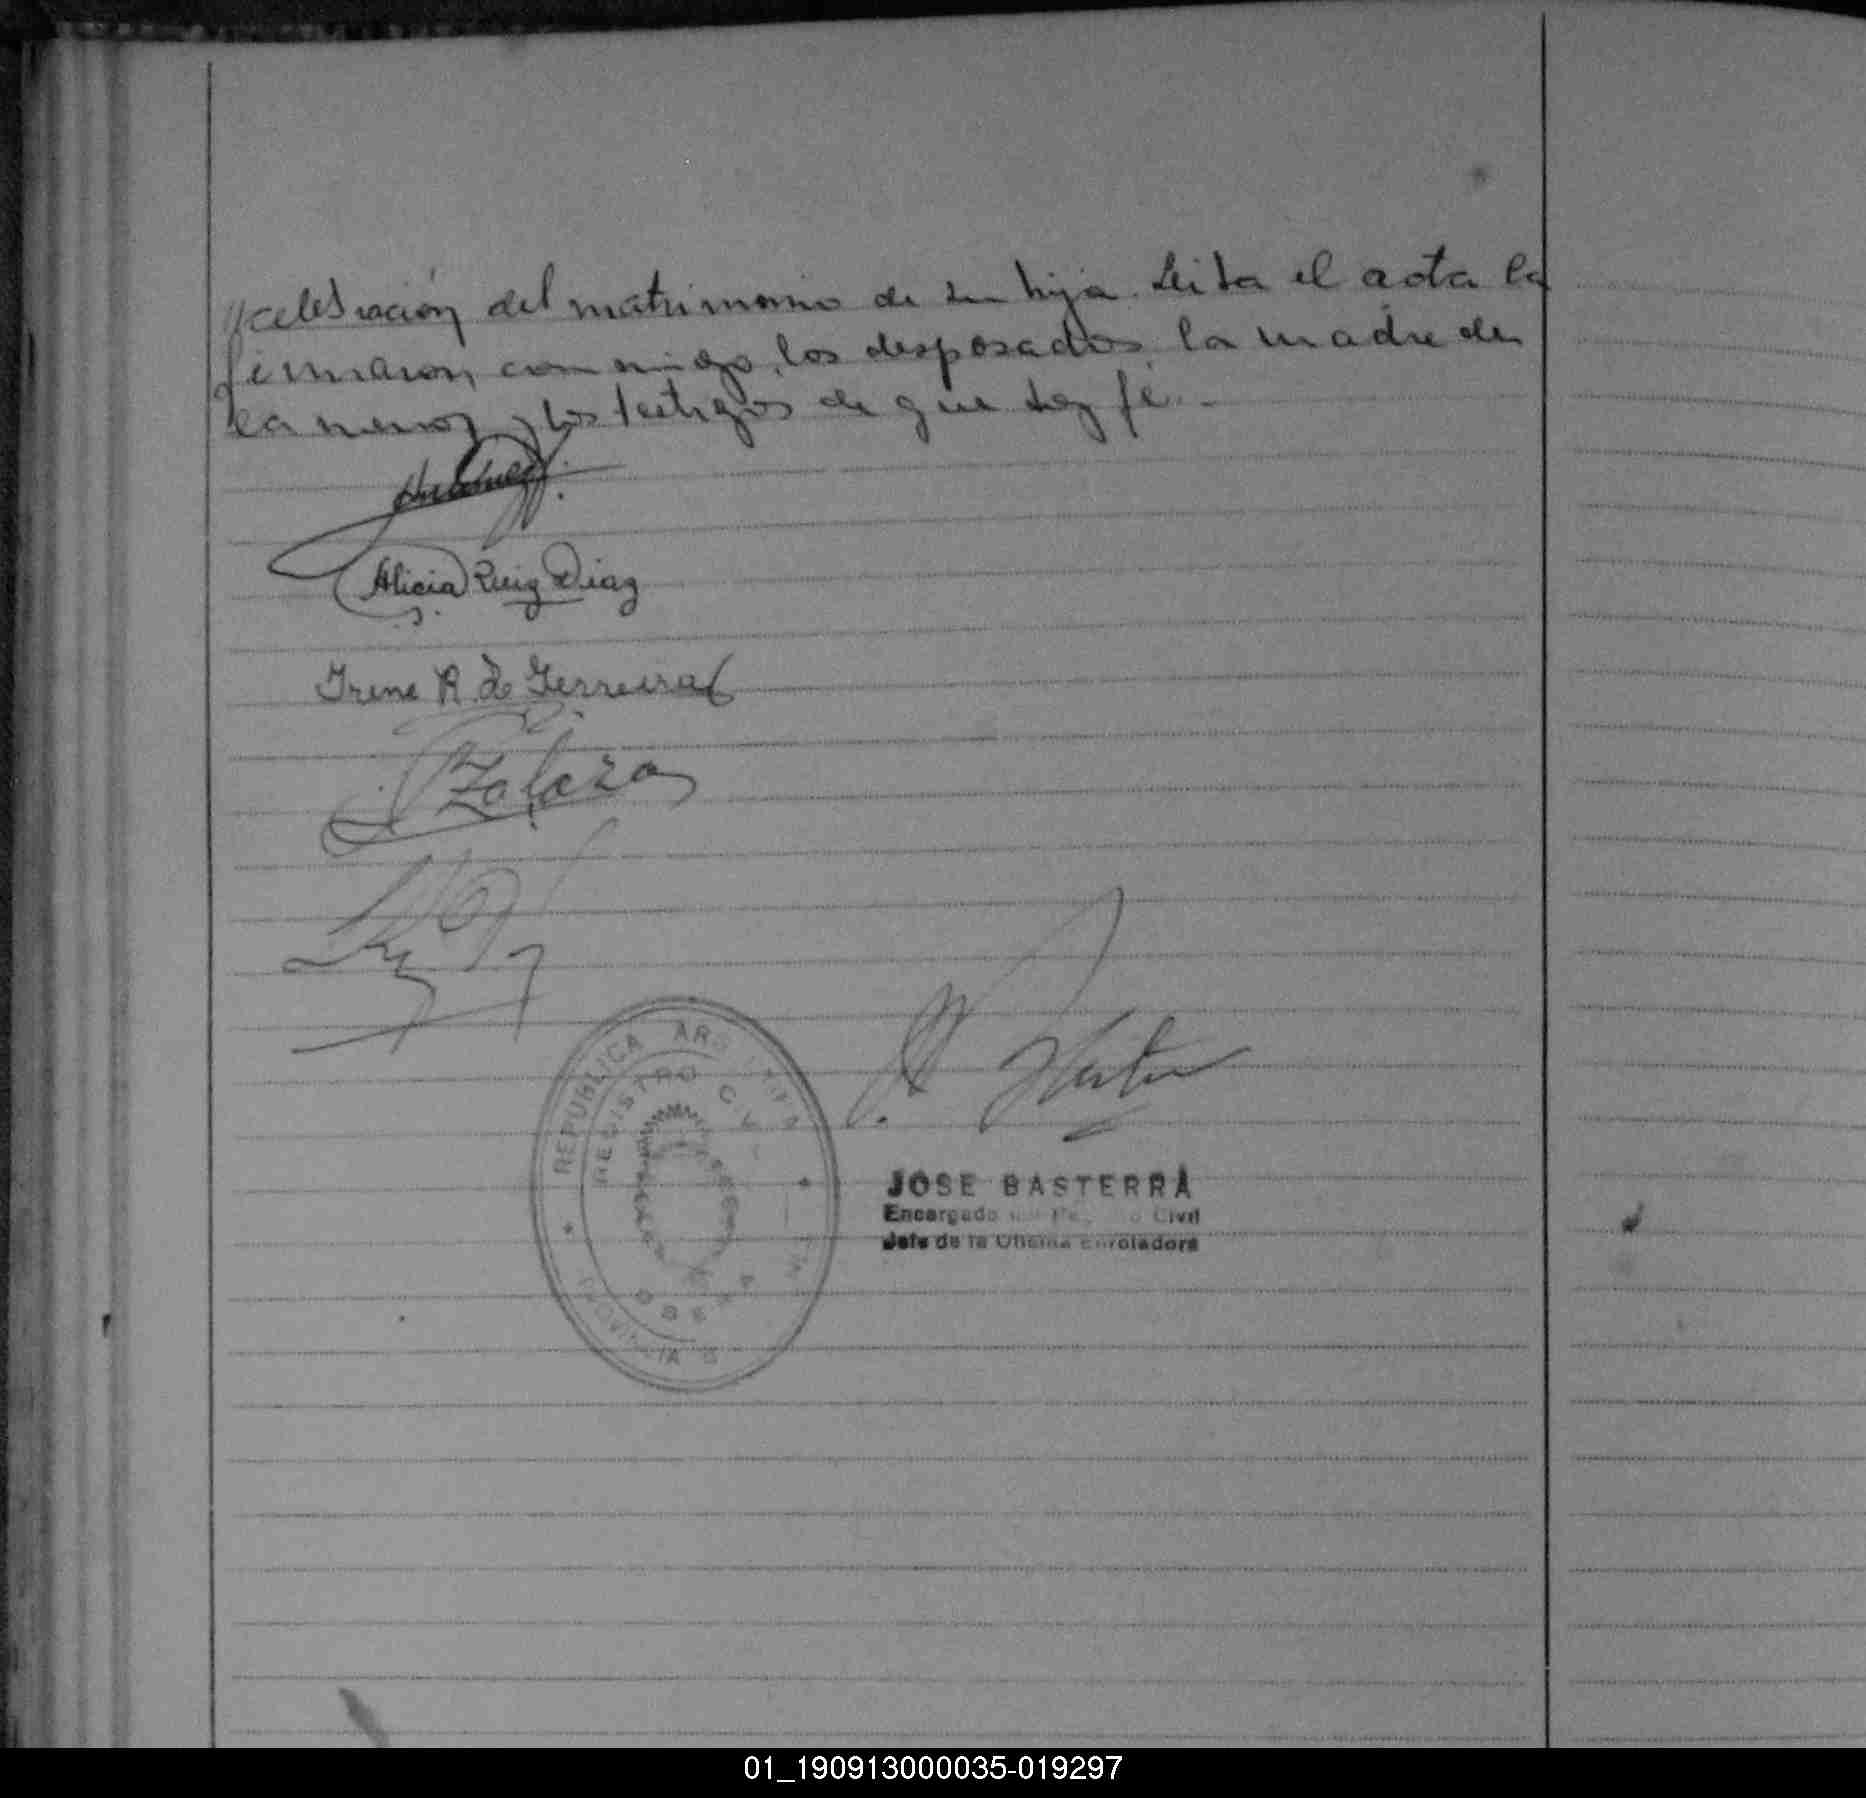 celebración del matrimonio de su hija. Leida el acta la
firmaron conmigo, los desposados, la madre de
la menor y los testigos de que doy fé.-
Alicia Ruiz Diaz
Irene R. de Ferreira
Zalazar
REPUBLICA ARGENTINA
REGISTRO CIVIL
OBERA
PROVINCIA
JOSE BASTERRA
Encargado del Registro Civil
Jefe de la Oficina Enroladora
01_190913000035-019297